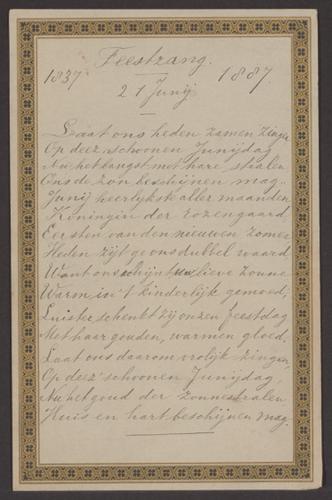 Feestzang.
1837 1887
21 Junij
Laat ons heden zamen zingen
Op deez' schoonen Junijdag
Nu het langst met hare stralen
Ons de zon beschijnen mag.
Junij heerlijkste aller maanden
Koningin der rozengaard
Eersten van den nieuwen zomer
Heden zijt ge ons dubbel waard
Want ons schijnt uw lieve zonne
Warm in 't kinderlijk gemoed,
Luister schenkt zij onzen feestdag
Met haar gouden, warmen gloed.
Laat ons daarom vrolijk zingen,
Op deez' schoonen Junijdag
Nu het goud der zonnestralen
Huis en hart beschijnen mag.